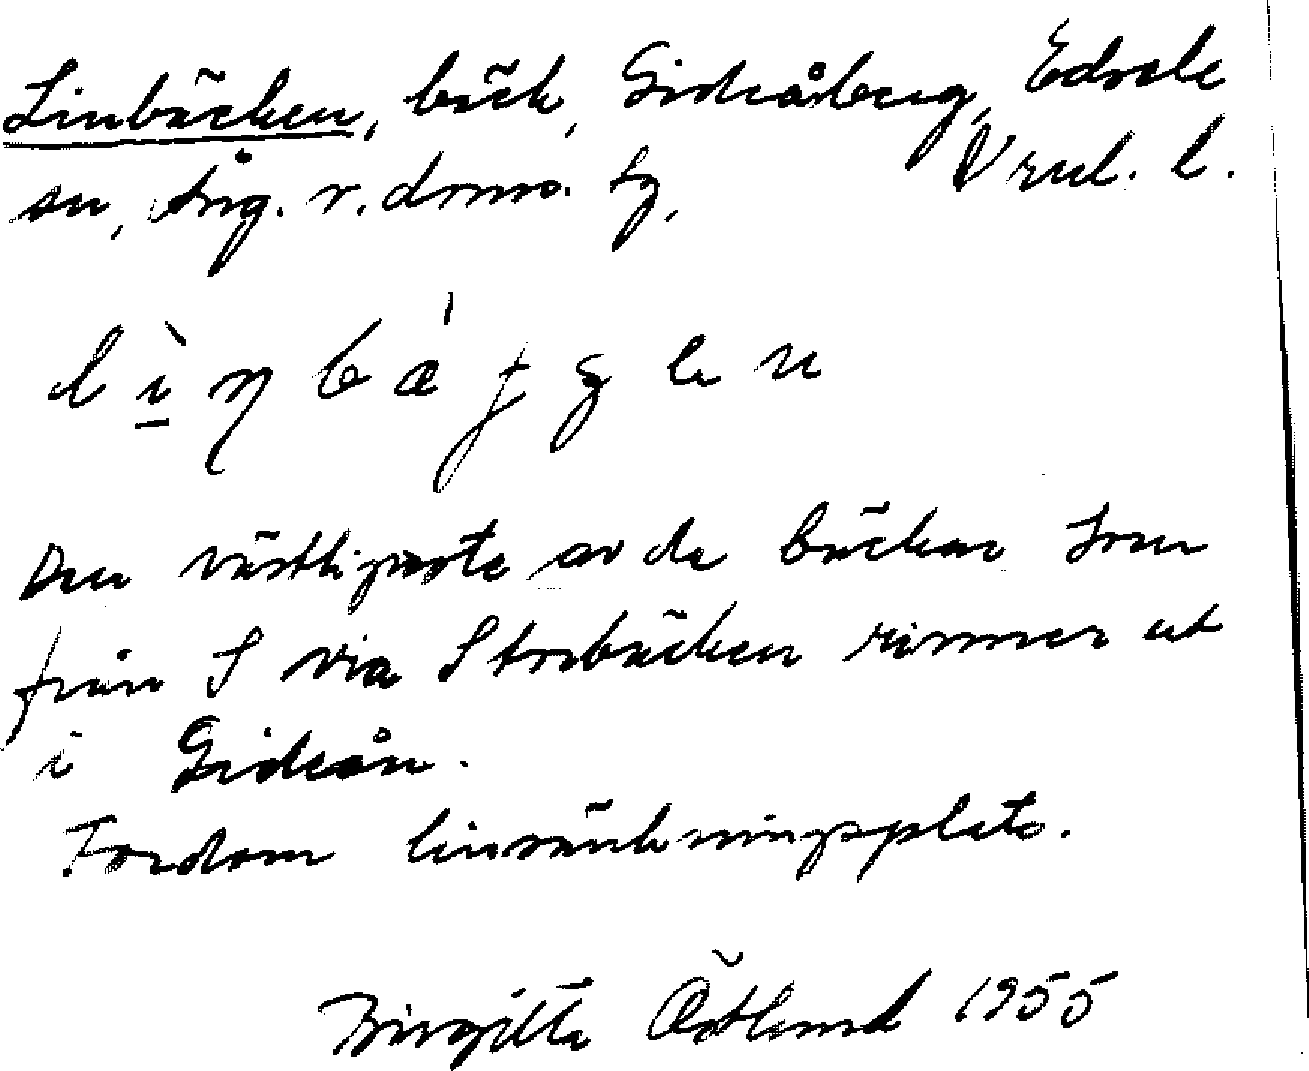 Linbäcken, bäck, Gideåberg, Edsele
sn, Ång. v. dmso. Ly.
Vnl. l.
lìŋbǽʃɡen
Den västligaste av de bäckar som
från S via Storbäcken rinner ut
i Gideån.
Fordom linsänkningsplats.
Birgitta Östlund 1955